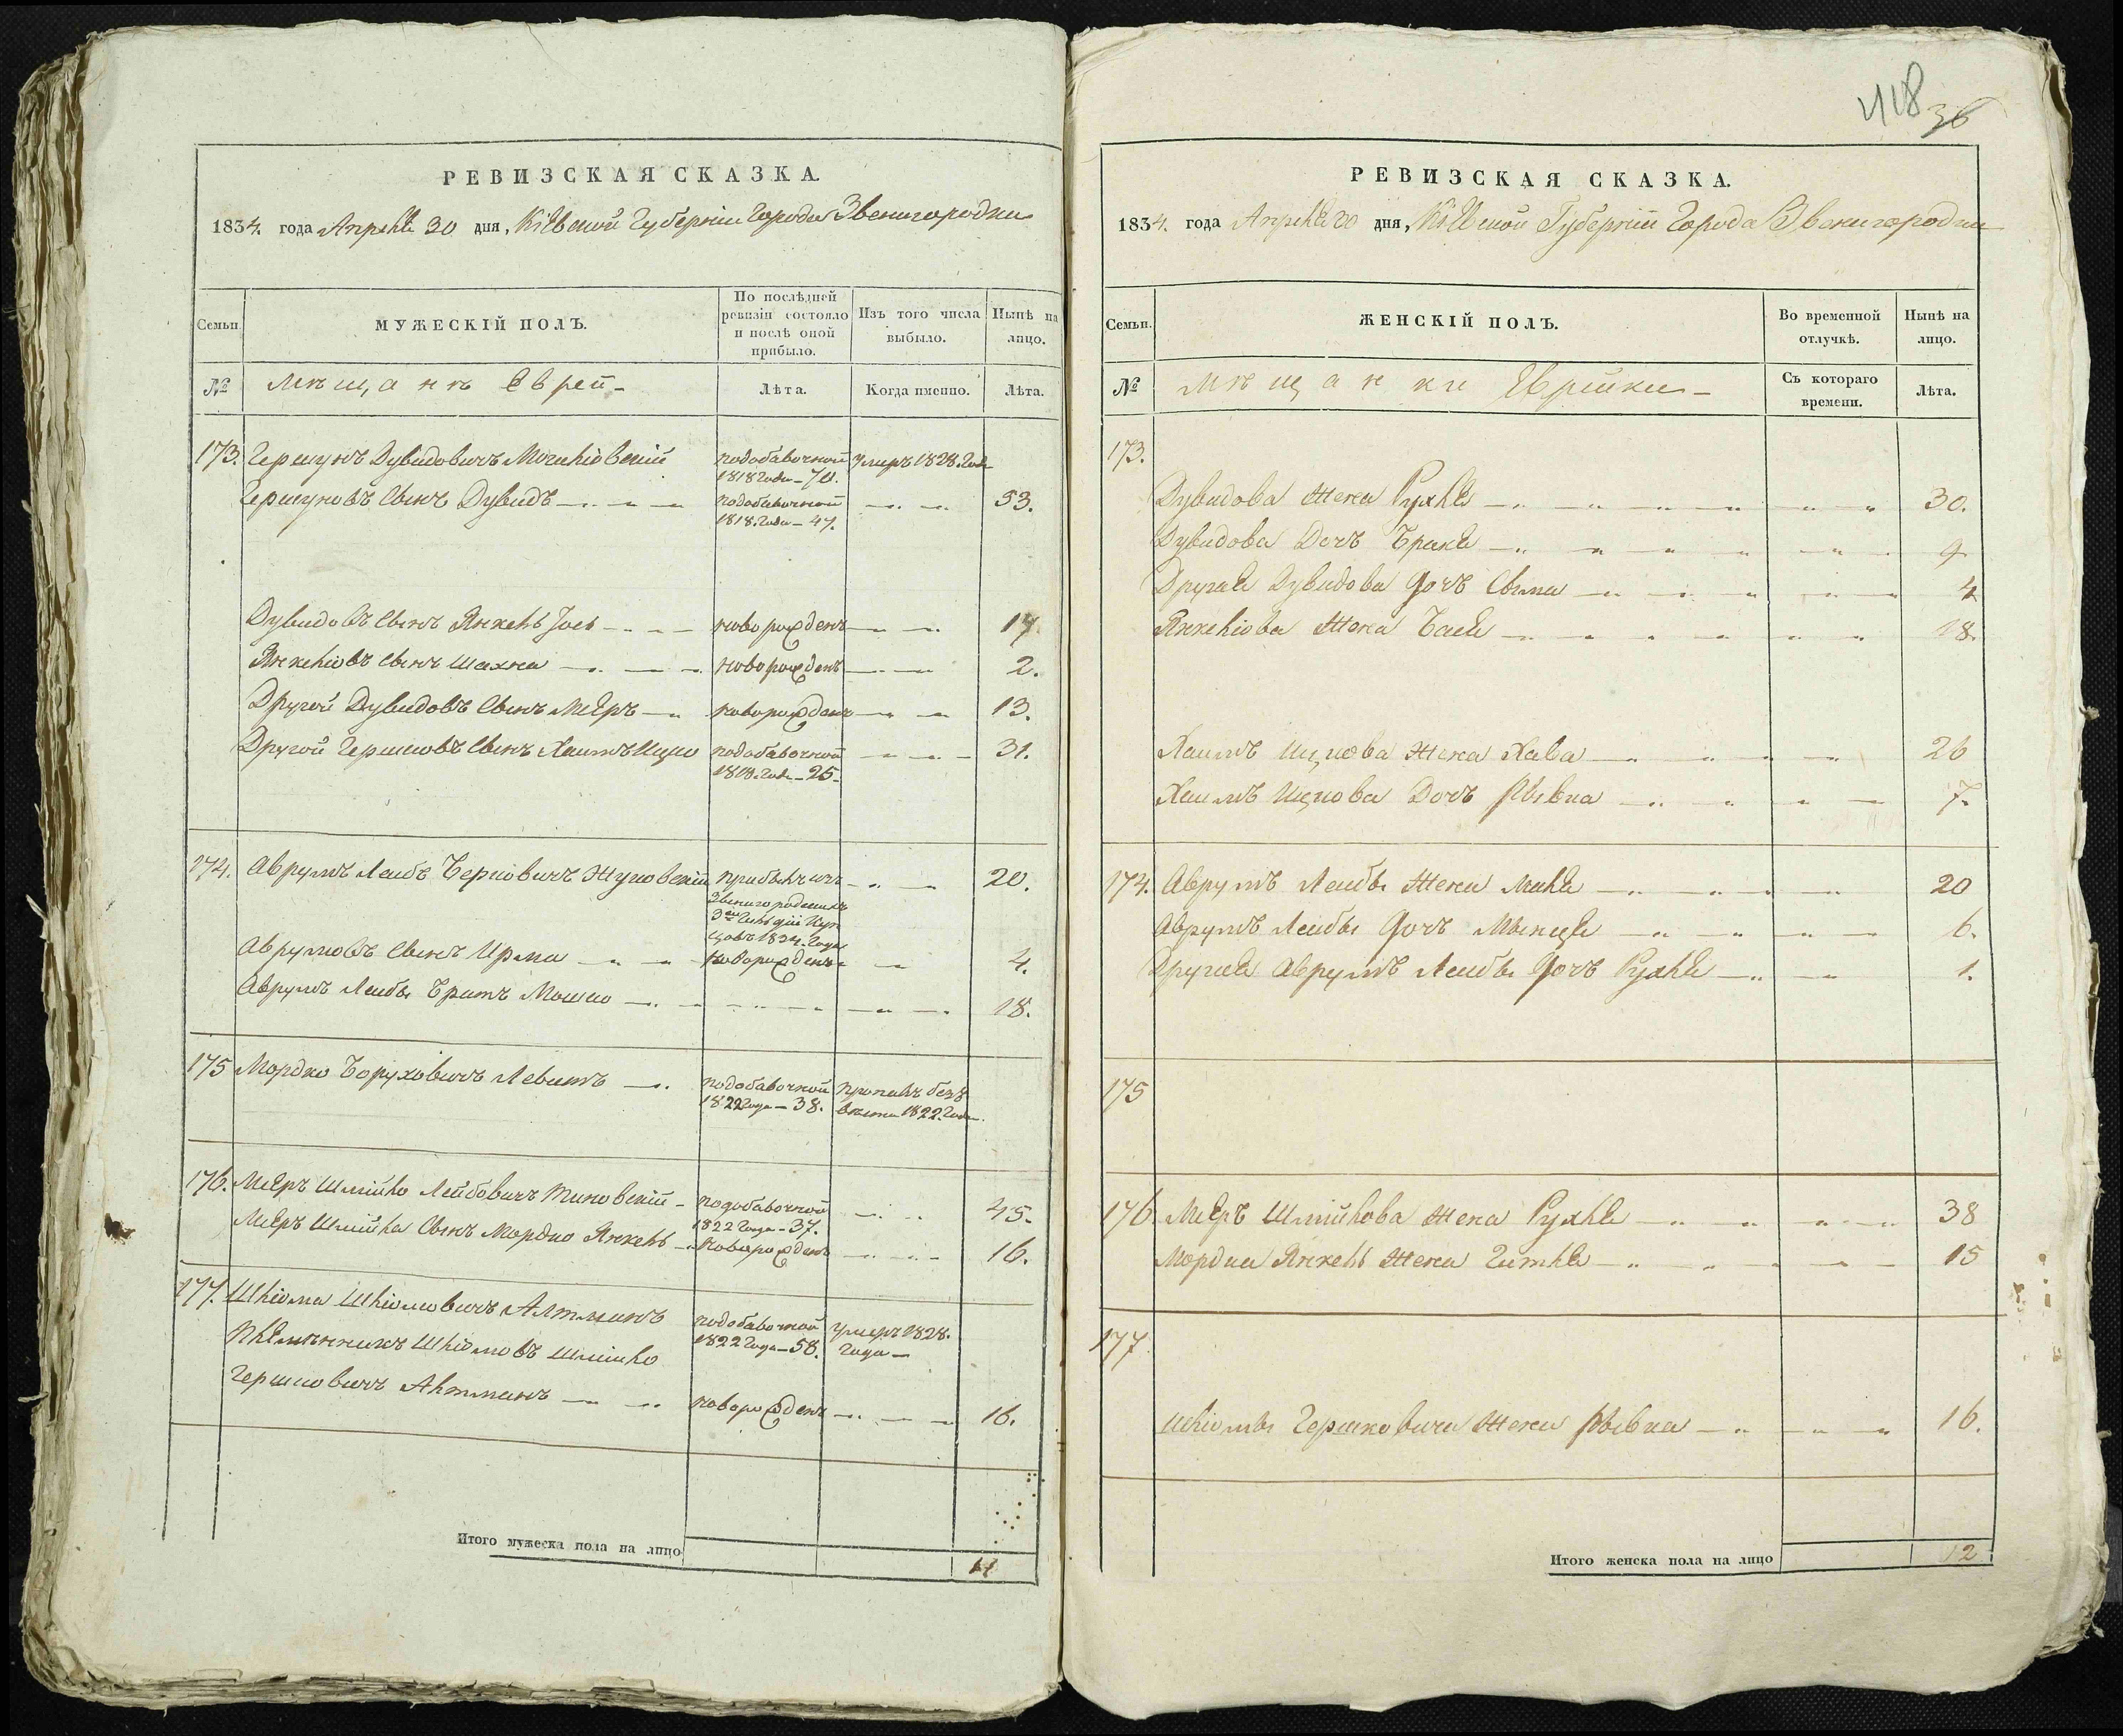 РЕВИЗСКАЯ СКАЗКА.
1834. года Апреля 30 дня, Кіевской Губерніи Города Звенигородки
Семьи.
МУЖЕСКІЙ ПОЛЪ.
По послѣдней ревизіи состояло и послѣ оной прибыло.
Изъ того числа выбыло.
Нынѣ на лицо.
№
Мѣщанъ Еврей
Лѣта.
Когда именно.
Лѣта.
173. Гершунъ Дувидовичъ подобавочной 1818 Года - 70. умеръ 1828. Года
Гершуновъ Сынъ Дувидъ подобавочной 1818. Года - 47. 53.
Дувидовъ Сынъ Янкель Іось новорожденъ 17.
Янкеліовъ Сынъ Шахна новорожденъ 2.
Другой Дувидовъ Сынъ Мееръ новорожденъ 13.
Другой Гершковъ Сынъ Хаимъ Ицко подобавочной Года - 25. 31.
174. Аврумъ Леибъ Берковичъ Жуковскій прибылъ изъ Звенигородскихъ 3ей Гильдіи Куп цовъ 1834. Года 20.
Аврумовъ Сынъ Ирма новорожденъ 4.
Аврумъ Леибы Братъ Мошко 18.
175 Мордко Боруховичъ Левитъ подобавочной 1822 Года - 38. пропалъ безъ вести 1822. Года
176. Мееръ Шмійло Лейбовичъ подобавочной 1822 Года - 37. 45.
Мееръ Шмійла Сынъ Мордко Янкель новорожденъ 16.
177. Шліома Шліомовичъ Алтманъ подобавочной 1822 Года - 58. умеръ 1828. Года
Племянникъ Шліомовъ
Гершковичъ Алтманъ новорожденъ 16.
Итого мужеска пола на лицо
11
418
36
РЕВИЗСКАЯ СКАЗКА.
1834. года Апреля 30 дня, Кіевской Губерніи Города Звенигородки
Семьи.
ЖЕНСКІЙ ПОЛЪ.
Во временной отлучкѣ.
Нынѣ на лицо.
№
Мѣщанки Еврейки
Съ котораго времени.
Лѣта.
173.
Дувидова Жена Рухля 30.
Дувидова Дочъ 9
Другая Дувидова Дочъ Сыма 4
Янкеліова Жена Бася 18.
Хаимъ Ицкова Жена Хава 26
Хаимъ Ицкова Дочъ Рывка 7.
174. Аврумъ Леибы Жена Маля 20
Аврумъ Леибы Дочъ 6.
Другая Аврумъ Леибы Дочъ Рухля 1.
175
176 Мееръ Шмійлова Жена Рухля 38
Мордка Янкель Жена Гитля 15
177
Шліомы Гершковича Жена Рывка 16.
Итого женска пола на лицо
12